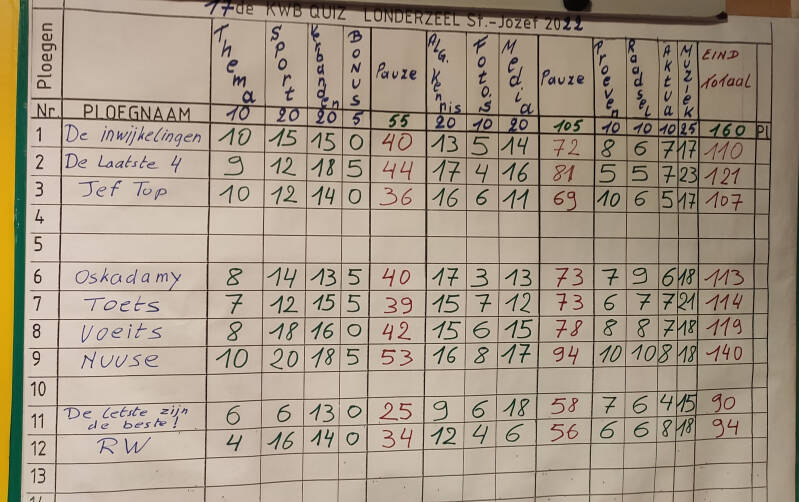 17de KWB QUIZ LONDERZEEL St.-Jozef 2022
Ploegen Thema Sport Verbanden BONUS Pauze Alg. Kennis Foto's Media Pauze Proeven Raadsel Aktua Muziek EIND totaal
Nr. PLOEGNAAM 10 20 20 5 55 20 10 20 105 10 10 10 25 160 PL
1 De inwijkelingen 10 15 15 0 40 13 5 14 72 8 6 7 17 110
2 De Laatste 4 9 12 18 5 44 17 4 16 81 5 5 7 23 121
3 Jef Top 10 12 14 0 36 16 6 11 69 10 6 5 17 107
4
5
6 Oskadamy 8 14 13 5 40 17 3 13 73 7 9 6 18 113
7 Toets 7 12 15 5 39 15 7 12 73 6 7 7 21 114
8 Voeits 8 18 16 0 42 15 6 15 78 8 8 7 18 119
9 Nuuse 10 20 18 5 53 16 8 17 94 10 10 8 18 140
10
11 De letste zijn de beste! 6 6 13 0 25 9 6 18 58 7 6 4 15 90
12 RW 4 16 14 0 34 12 4 6 56 6 6 8 18 94
13